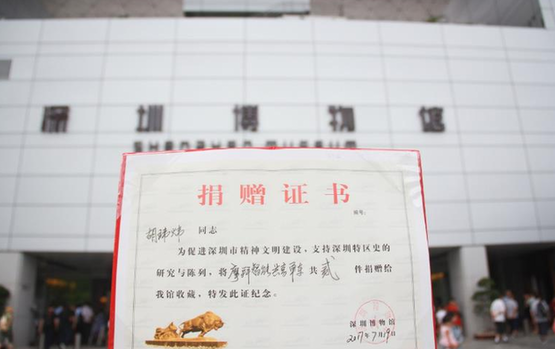 深圳博物馆
SHENZHEN MUSEUM
捐赠证书
胡玮炜 同志
为促进深圳市精神文明建设，支持深圳特区史
的研究与陈列，将摩拜智能共享单车共贰件捐赠给
我馆收藏，特发此证纪念。
深圳博物馆
2017年7月19日